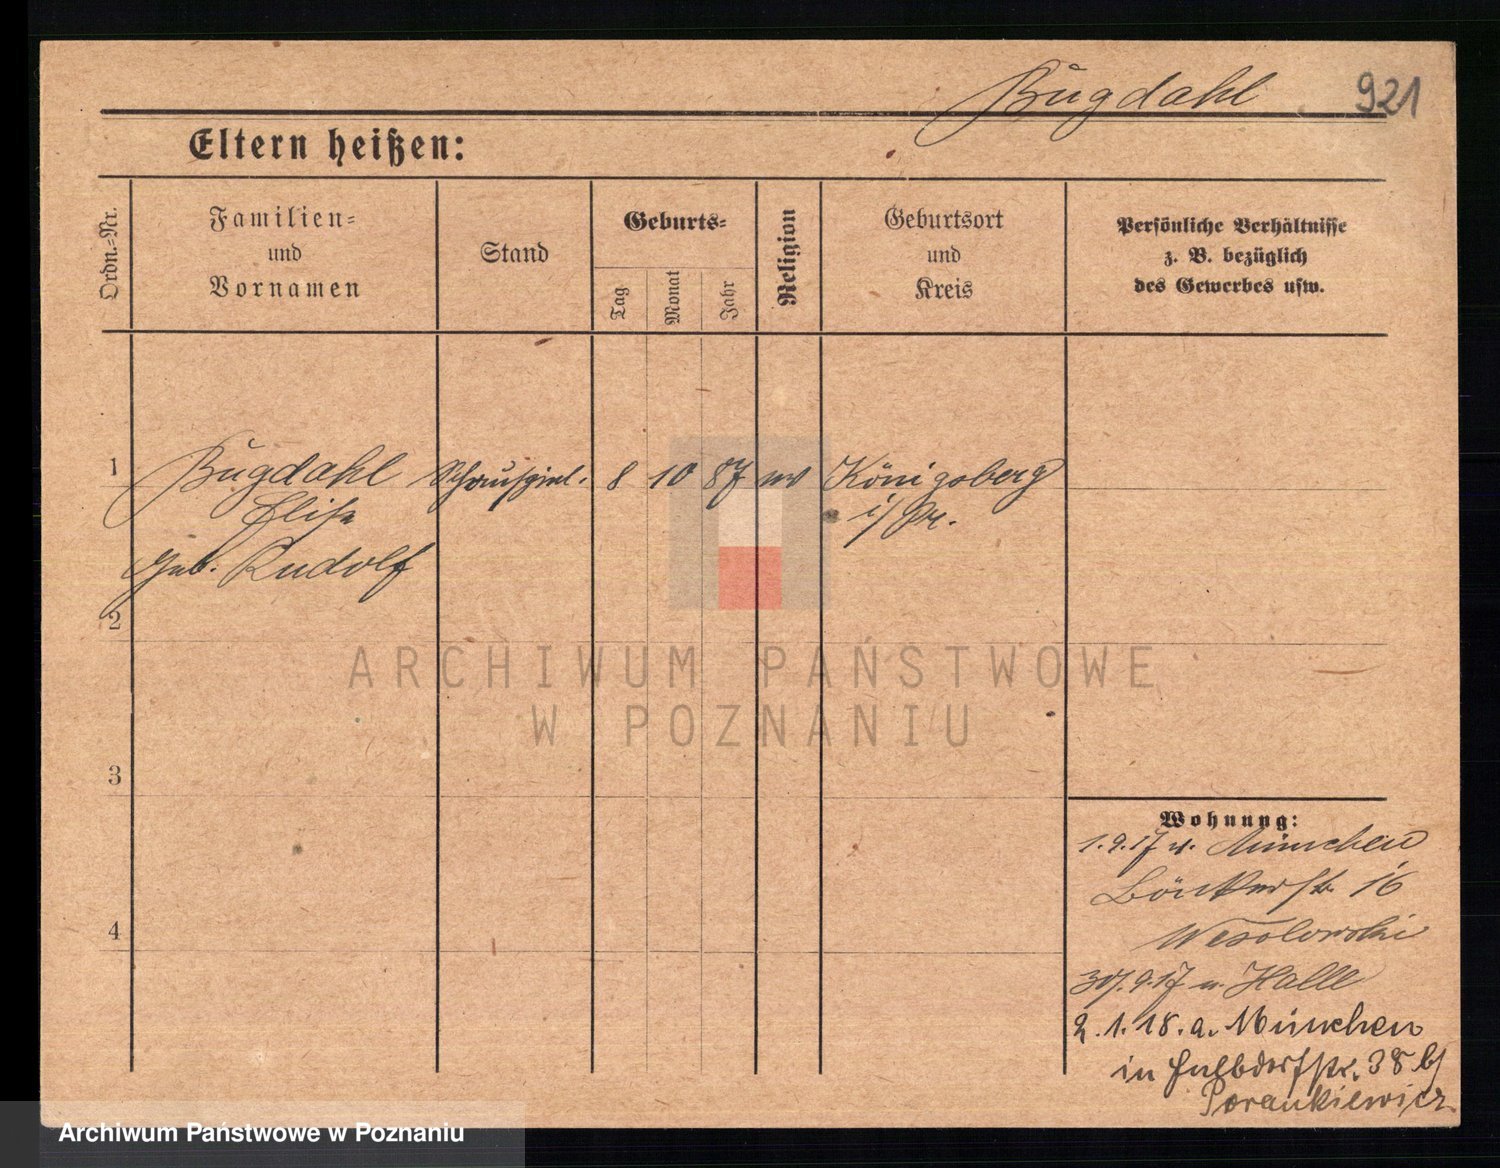 Bugdahl 921
Eltern heißen:
Ordn.=Nr.
Familien=
und
Vornamen
Stand
Geburts=
Tag
Monat
Jahr
Religion
Geburtsort
und
Kreis
Persönliche Verhältnisse
z. B. bezüglich
des Gewerbes usw.
1 Bugdahl Schauspiel. 8 10 87 Königsberg
Elise i/Pr.
geb. Rudolf
2
ARCHIWUM PAŃSTWOWE
W POZNANIU
3
Wohnung:
1.9.17 v. München
16
Wesolowski
30.9.17 n. Halle
4
2.1.18. a. München
in 38 b/
Porankiewicz
Archiwum Państwowe w Poznaniu